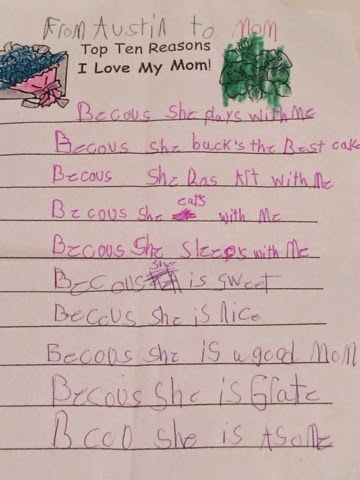 From Austin to mom
Top Ten Reasons
I Love My Mom!
Becous she plays with Me
Becous she back's the Best cake
Becous she Das Art with Me
Becous she eats with Me
Becous she sleeps with Me
Becous she is sweet
Becous she is nice
Becous she is a good Mom
Becous she is Grate
Becod she is Asome